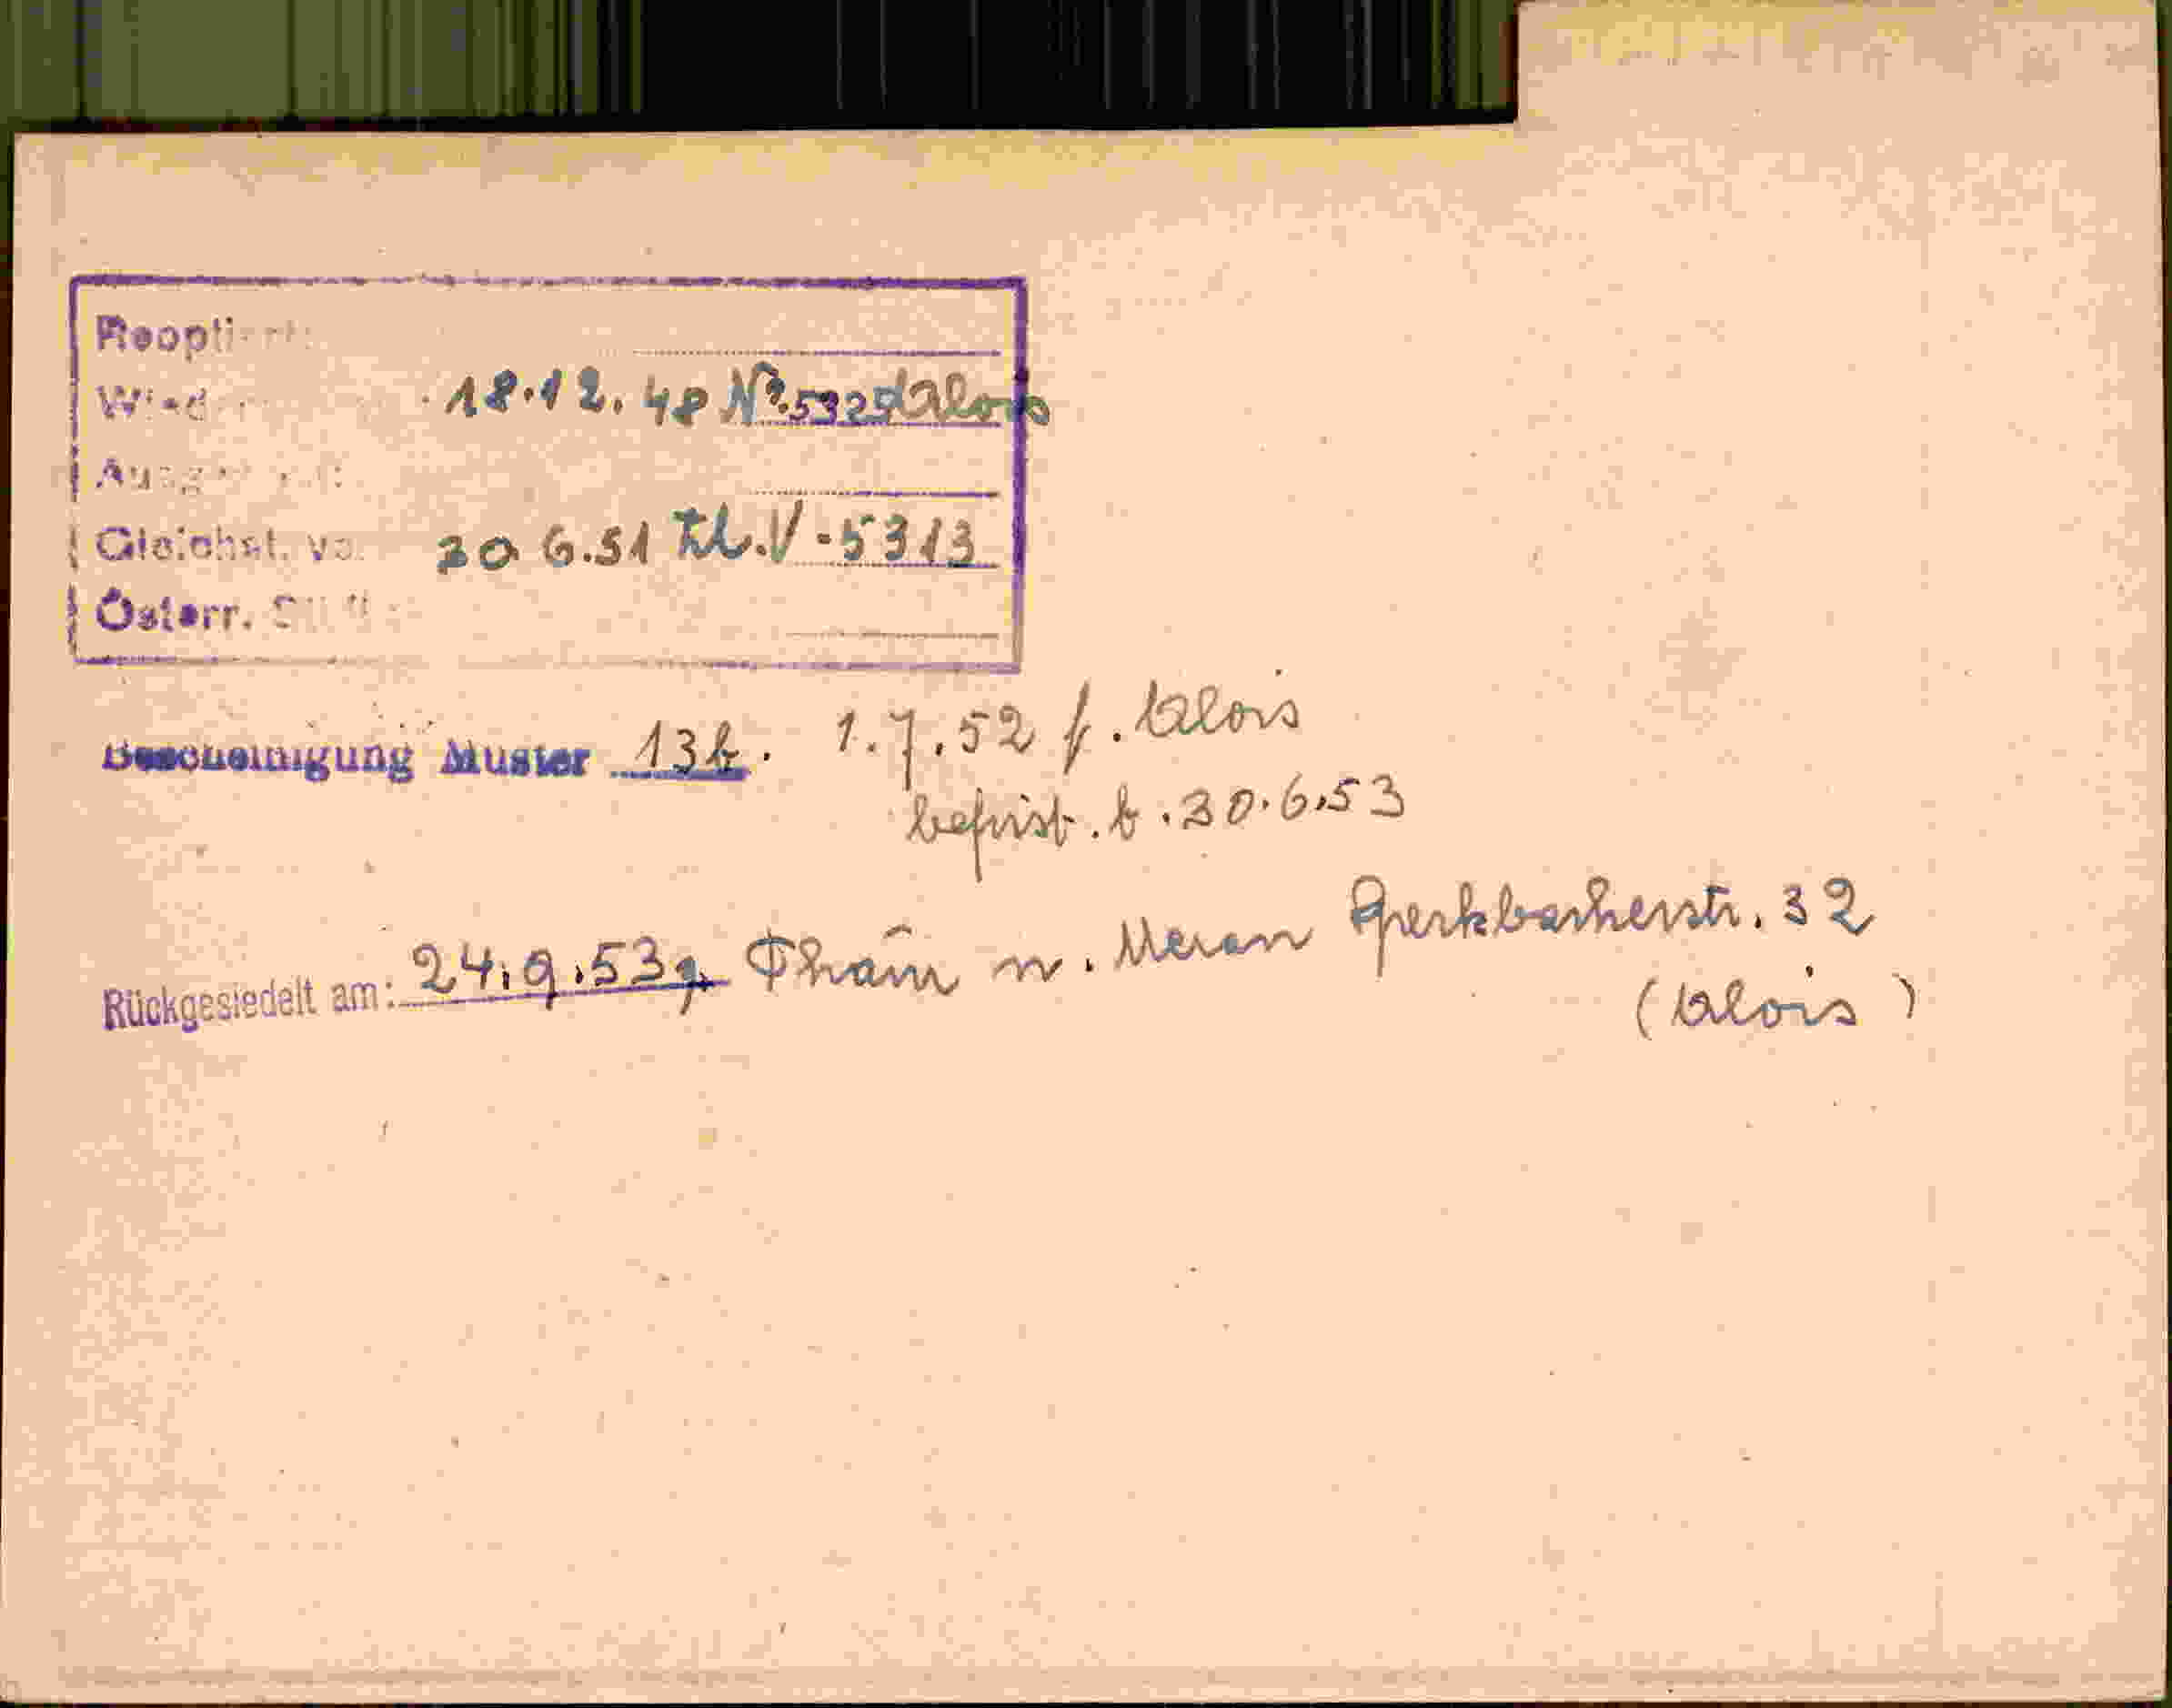 Reoptiert:
18.12.48 Nr. 5325 Alois
Gleichst. v. 30.6.51 Zl. V-5313
Österr.
Bescheinigung Muster 13b. 1.7.52 f. Alois
befrist. b. 30.6.53
Rückgesiedelt am: 24.9.53 n. Meran 32
(Alois)